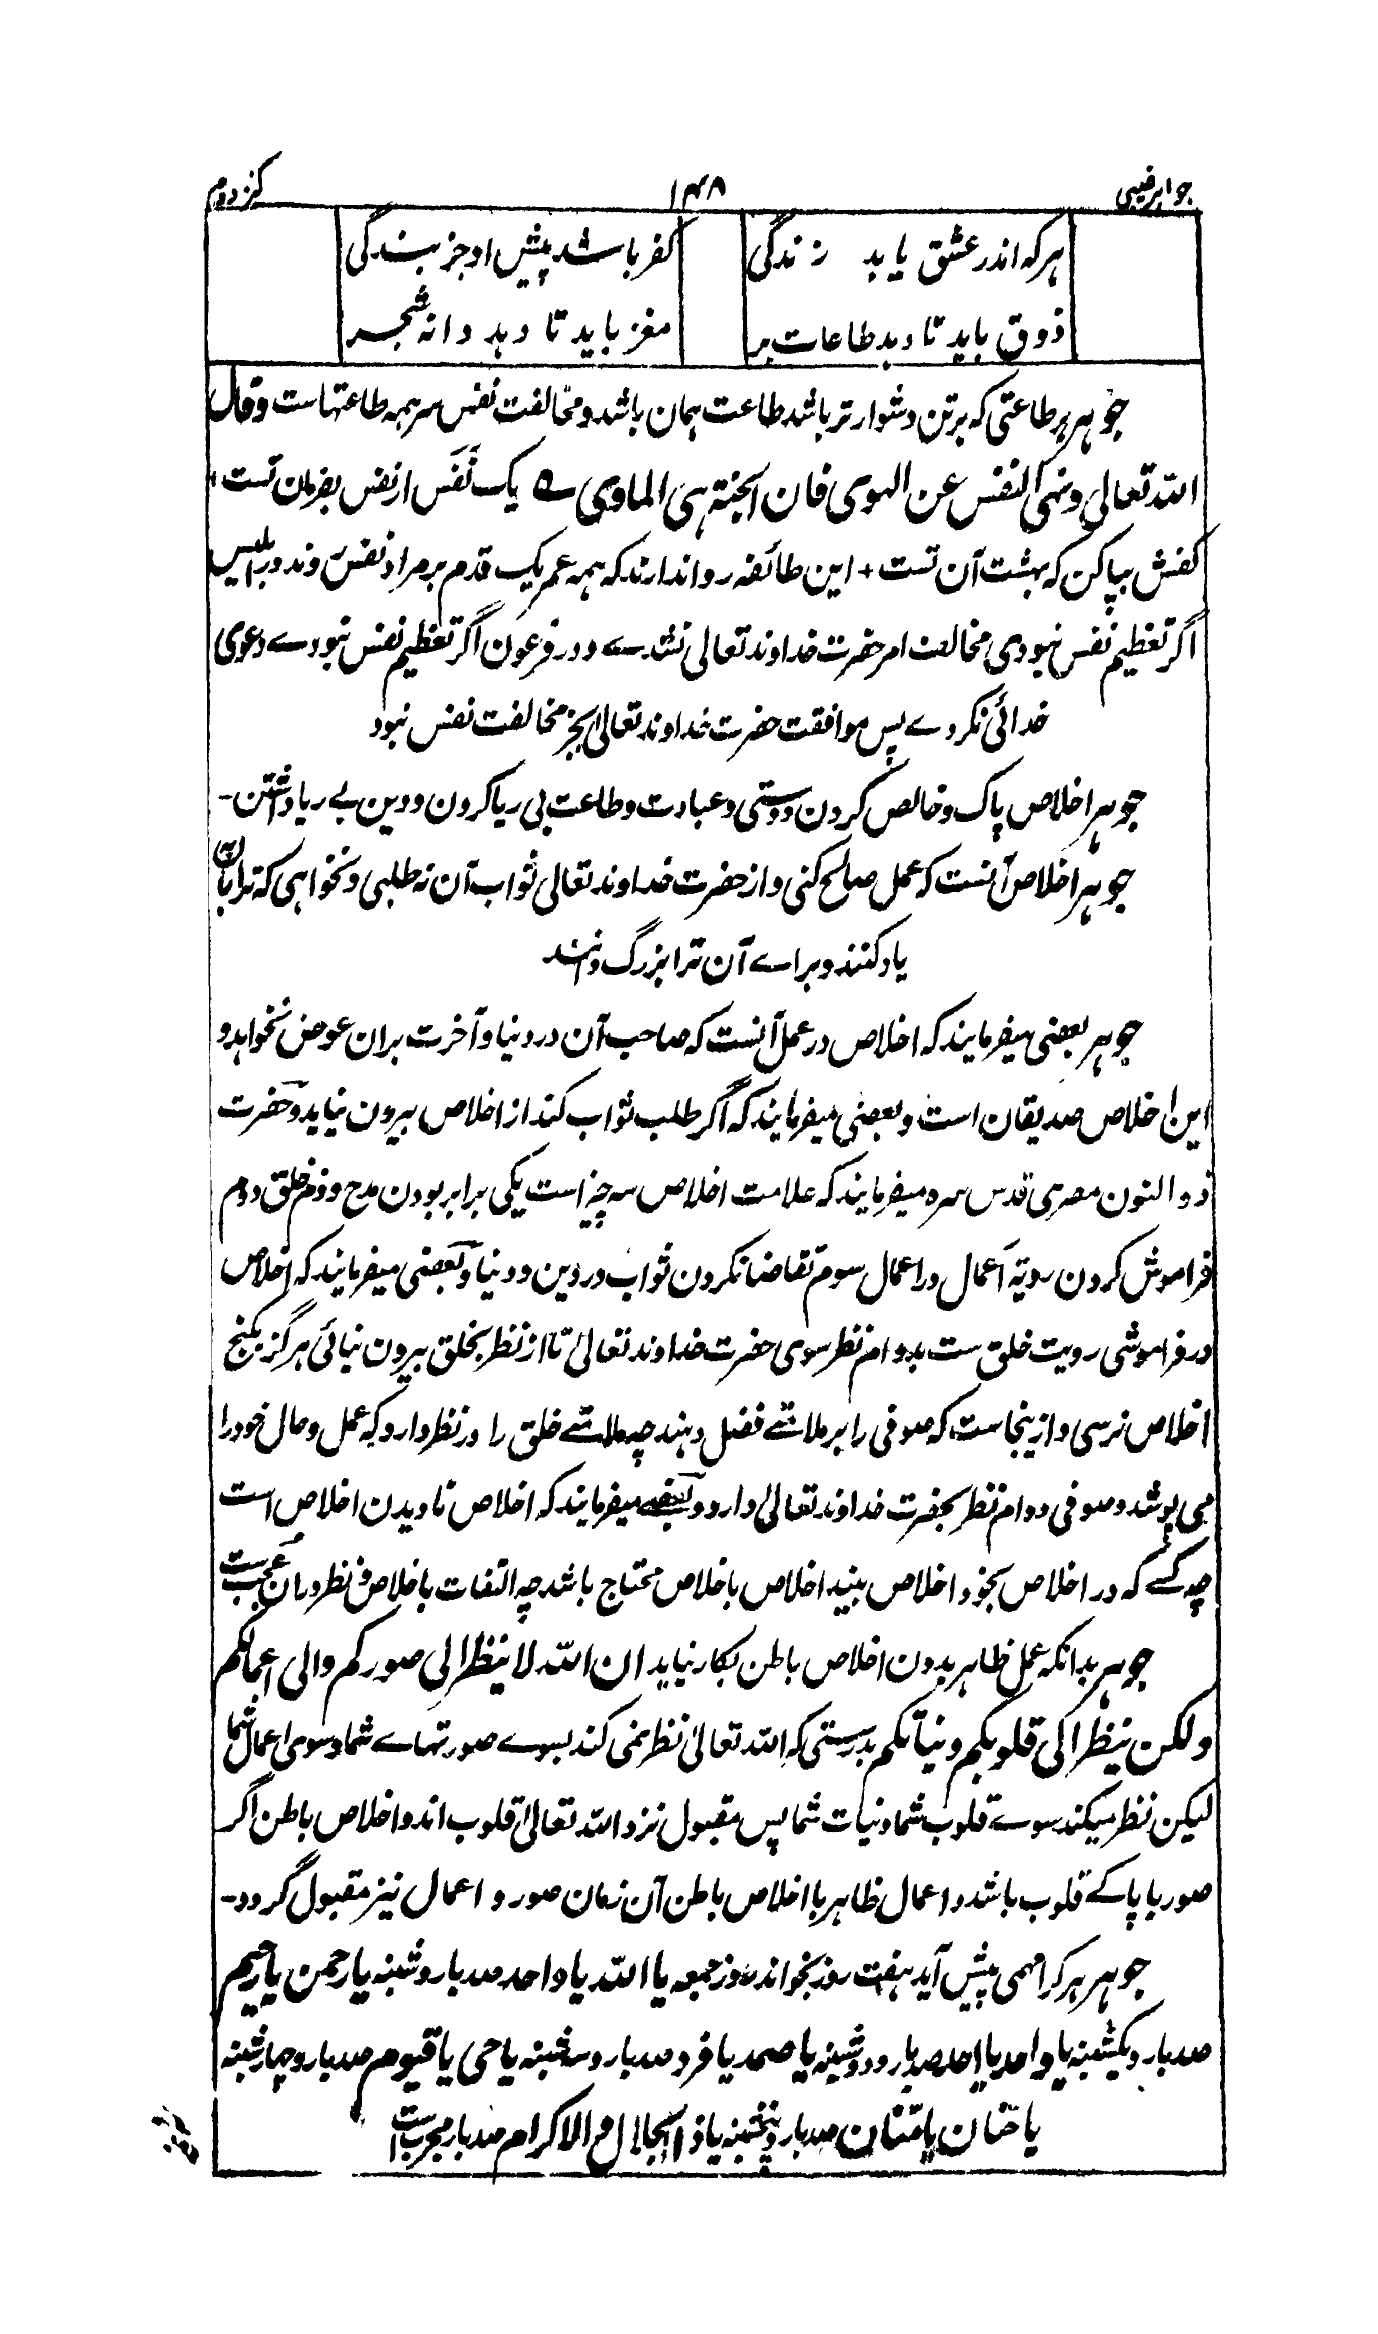 جواهر غیبی ۱۴۸ کنز دوم
هرکه اندر عشق یابد زندگی کفر باشد پیش او جز بندگی
ذوق باید تا دهد طاعات بر مغز باید تا دهد دانه شجر
جوهر هر طاعتی که بر تن دشوارتر باشد طاعت همان باشد و مخالفت نفس سر همه طاعتهاست و قال
الله تعالی ونهی النفس عن الهوی فان الجنة هی الماوی یک نفس از نفس بفرمان تست
کفش بپا کن که بهشت آن تست + این طائفه روا ندارند که همه عمر یک قدم بر مراد نفس روند و در ابلیس
اگر تعظیم نفس نبودی مخالفت امر حضرت خداوند تعالی نشدے و در فرعون اگر تعظیم نفس نبودے دعوی
خدائی نکردے پس موافقت حضرت خداوند تعالیٰ بجز مخالفت نفس نبود
جوهر اخلاص پاک و خالص کردن دوستی و عبادت و طاعت بی ریا کردن و دین بے ریا داشتن۔
جوهر اخلاص آنست که عمل صالح کنی و از حضرت خداوند تعالی ثواب آن نه طلبی و نخواهی که ترا بآن
یاد کنند و براے آن ترا بزرگ دانند
جوهر بعضی میفرمایند که اخلاص در عمل آنست که صاحب آن در دنیا و آخرت بران عوض نخواهد و
این اخلاص صدیقان است و بعضی میفرمایند که اگر طلب ثواب کند از اخلاص بیرون نیاید و حضرت
ذوالنون مصری قدس سره میفرمایند که علامت اخلاص سه چیز است یکی برابر بودن مدح و ذم خلق دوم
فراموش کردن رویة اعمال در اعمال سوم تقاضا نکردن ثواب در دین و دنیا و بعضی میفرمایند که اخلاص
در فراموشی رویت خلق ست بدوام نظر سوی حضرت خداوند تعالیٰ تا از نظر بخلق بیرون نیائی هرگز بگنج
اخلاص نرسی و ازینجاست که صوفی را بر ملامتے فضل دهند چه ملامتے خلق را در نظر دارد که عمل و حال خود را
می پوشد و صوفی دوام نظر بحضرت خداوند تعالیٰ دارد و بعضے میفرمایند که اخلاص نادیدن اخلاص است
چه کسے که در اخلاص بخود اخلاص بیند اخلاص باخلاص محتاج باشد چه التفات باخلاص و نظر دران عجب ست
جوهر بدانکه عمل ظاهر بدون اخلاص باطن بکار نیاید ان الله لا ینظر الی صورکم والی اعمالکم
ولکن ینظر الی قلوبکم ونیاتکم بدرستی که الله تعالیٰ نظر نمی کند بسوے صورتهاے شما و سوی اعمال شما
لیکن نظر میکند سوے قلوب شما و نیات شما پس مقبول نزد الله تعالیٰ قلوب اند و اخلاص باطن اگر
صور با پاکے قلوب باشد و اعمال ظاهر با اخلاص باطن آن زمان صور و اعمال نیز مقبول گردد۔
جوهر هرکرا مهمی پیش آید هفت روز بخواند روز جمعه یا الله یا واحد صدبار و شنبه یا رحمن یا رحیم
صدبار و یکشنبه یا واحد یا احد صدبار و دوشنبه یا صمد یا فرد صدبار و سه شنبه یا حی یا قیوم صدبار و چهارشنبه
یا حنان یا منان صدبار و پنجشنبه یا ذا الجلال و الاکرام صدبار مجرب است